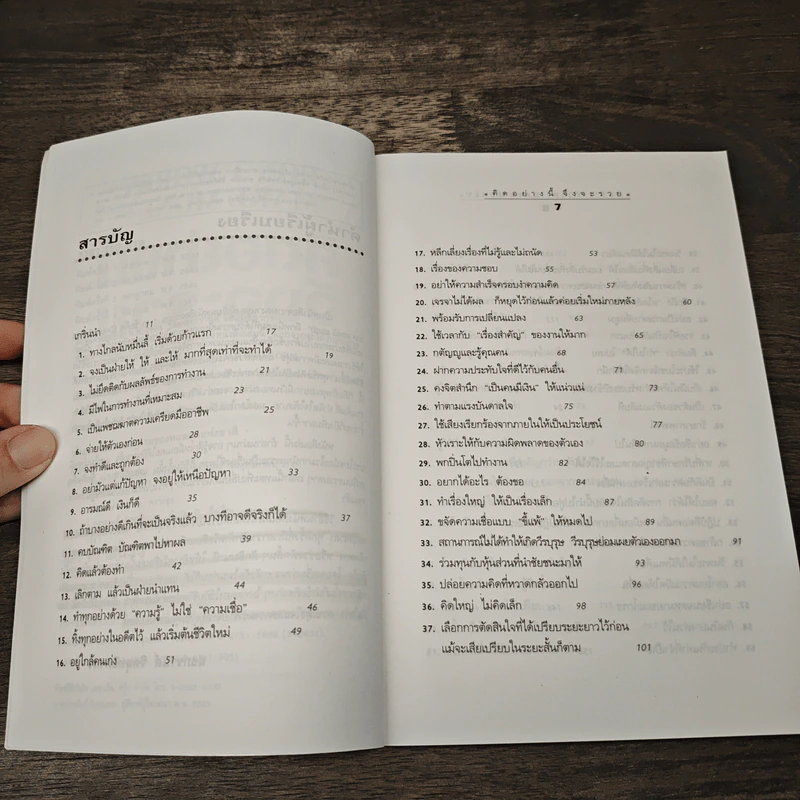 สารบัญ
เกริ่นนำ 11
1. ทางไกลนับหมื่นลี้ เริ่มด้วยก้าวแรก 17
2. จงเป็นฝ่ายให้ ให้ และให้ มากที่สุดเท่าที่จะทำได้ 19
3. ไม่ยึดติดกับผลลัพธ์ของการทำงาน 21
4. มีไฟในการทำงานที่เหมาะสม 23
5. เป็นเพชฌฆาตความเครียดมืออาชีพ 25
6. จ่ายให้ตัวเองก่อน 28
7. จงทำดีและถูกต้อง 30
8. อย่ามัวแต่แก้ปัญหา จงอยู่ให้เหนือปัญหา 33
9. อารมณ์ดี เงินก็ดี 35
10. ถ้าบางอย่างดีเกินที่จะเป็นจริงแล้ว บางทีอาจดีจริงก็ได้ 37
11. คบบัณฑิต บัณฑิตพาไปหาผล 39
12. คิดแล้วต้องทำ 42
13. เลิกตาม แล้วเป็นฝ่ายนำแทน 44
14. ทำทุกอย่างด้วย "ความรู้" ไม่ใช่ "ความเชื่อ" 46
15. ทิ้งทุกอย่างในอดีตไว้ แล้วเริ่มต้นชีวิตใหม่ 49
16. อยู่ใกล้คนเก่ง 51
คิดอย่างนี้ จึงจะรวย
7
17. หลีกเลี่ยงเรื่องที่ไม่รู้และไม่ถนัด 53
18. เรื่องของความชอบ 55
19. อย่าให้ความสำเร็จครอบงำความคิด 57
20. เจรจาไม่ได้ผล ก็หยุดไว้ก่อนแล้วค่อยเริ่มใหม่ภายหลัง 60
21. พร้อมรับการเปลี่ยนแปลง 63
22. ใช้เวลากับ "เรื่องสำคัญ" ของงานให้มาก 65
23. กตัญญูและรู้คุณคน 68
24. ฝากความประทับใจที่ดีไว้กับคนอื่น 71
25. คงจิตสำนึก "เป็นคนมีเงิน" ให้แน่วแน่ 73
26. ทำตามแรงบันดาลใจ 75
27. ใช้เสียงเรียกร้องจากภายในให้เป็นประโยชน์ 77
28. หัวเราะให้กับความผิดพลาดของตัวเอง 80
29. พกปิ่นโตไปทำงาน 82
30. อยากได้อะไร ต้องขอ 84
31. ทำเรื่องใหญ่ ให้เป็นเรื่องเล็ก 87
32. ขจัดความเชื่อแบบ "ขี้แพ้" ให้หมดไป 89
33. สถานการณ์ไม่ได้ทำให้เกิดวีรบุรุษ วีรบุรุษย่อมเผยตัวเองออกมา 91
34. ร่วมทุนกับหุ้นส่วนที่นำชัยชนะมาให้ 93
35. ปล่อยความคิดที่หวาดกลัวออกไป 96
36. คิดใหญ่ ไม่คิดเล็ก 98
37. เลือกการตัดสินใจที่ได้เปรียบระยะยาวไว้ก่อน
แม้จะเสียเปรียบในระยะสั้นก็ตาม 101